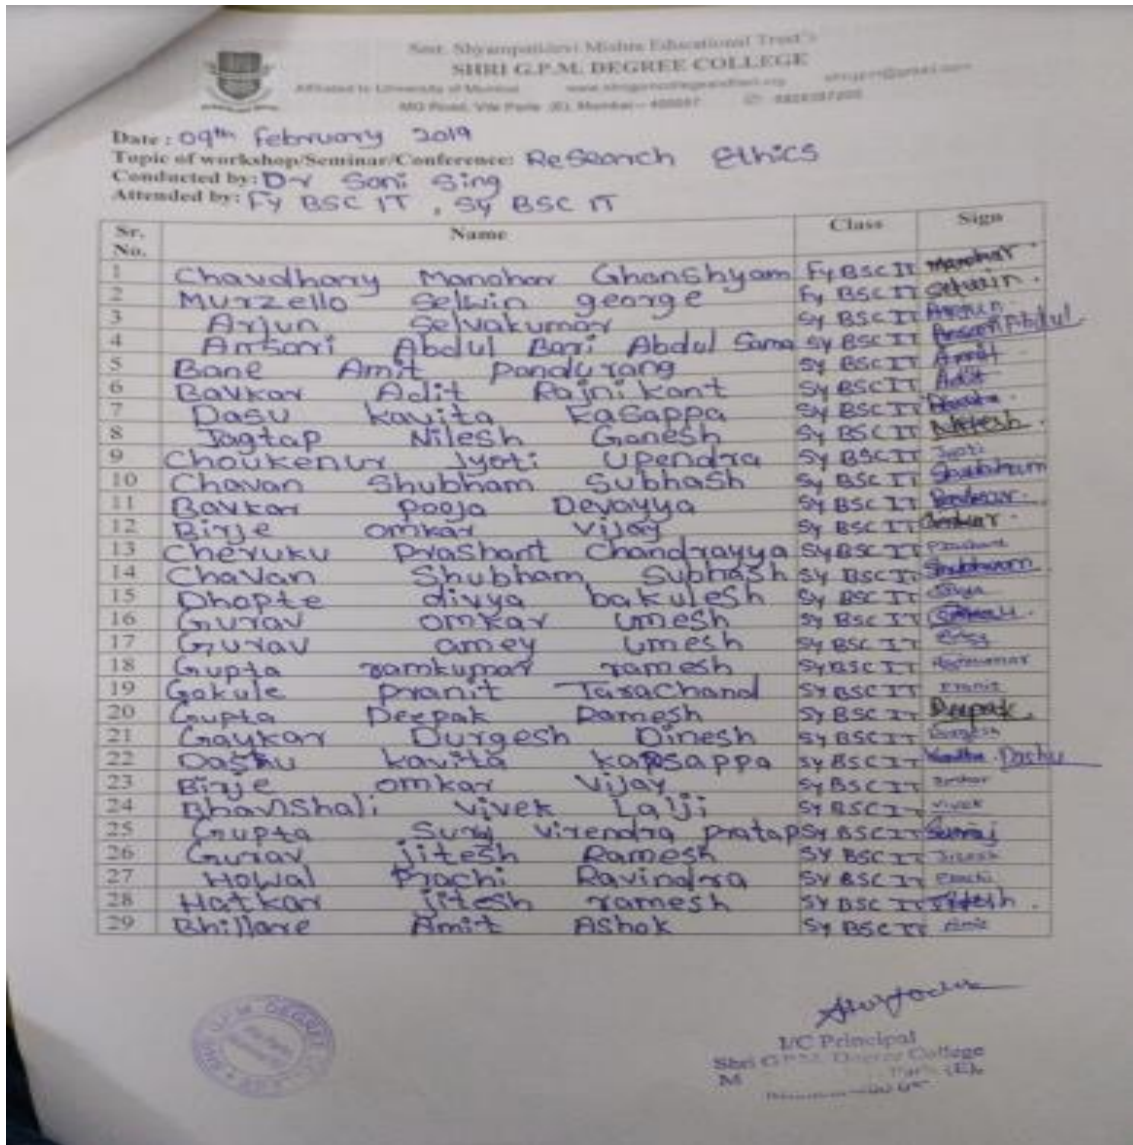 Smt. Shyampatidevi Mishra Educational Trust's
SHRI G.P.M. DEGREE COLLEGE
Affiliated to University of Mumbai
MG Road, Vile Parle (E), Mumbai - 400057
Date : 09th February 2019
Topic of workshop/Seminar/Conference: Research Ethics
Conducted by: Dr Soni Sing
Attended by: Fy BSC IT , Sy BSC IT
Sr. No. Name Class Sign
1 Chaudhary Manohar Ghanshyam Fy BSC IT Manohar
2 Murzello Selwin george Fy BSC IT Selwin
3 Arjun Selvakumar Sy BSC IT Arjun
4 Ansari Abdul Bari Abdul Sama Sy BSC IT Ansari Abdul
5 Bane Amit Pandurang Sy BSC IT Amit
6 Bavkar Adit Rajnikant Sy BSC IT Adit
7 Dasu kavita kasappa Sy BSC IT
8 Jagtap Nilesh Ganesh Sy BSC IT Nilesh
9 Choukenur Jyoti Upendra Sy BSC IT Jyoti
10 Chavan Shubham Subhash Sy BSC IT Shubham
11 Bavkar Pooja Devayya Sy BSC IT
12 Birje omkar vijay Sy BSC IT Omkar
13 Cheruku Prashant Chandrayya Sy BSC IT Prashant
14 Chavan Shubham Subhash Sy BSC IT Shubham
15 Dhopte divya bakulesh Sy BSC IT Divya
16 Gurav omkar umesh Sy BSC IT
17 Gurav amey umesh Sy BSC IT
18 Gupta ramkumar ramesh Sy BSC IT Ramkumar
19 Gokule Pranit Tarachand Sy BSC IT Pranit
20 Gupta Deepak Ramesh Sy BSC IT Deepak
21 Gaykar Durgesh Dinesh Sy BSC IT Durgesh
22 Dashu kavita kapsappa Sy BSC IT Dashu
23 Birje omkar vijay Sy BSC IT Omkar
24 Bhavnshali vivek Lalji Sy BSC IT vivek
25 Gupta Suraj virendra pratap Sy BSC IT Suraj
26 Gurav jitesh Ramesh Sy BSC IT Jitesh
27 Howal Prachi Ravindra Sy BSC IT Prachi
28 Hatkar jitesh ramesh Sy BSC IT Jitesh
29 Bhillare Amit Ashok Sy BSC IT Amit
I/C Principal
Shri G.P.M. Degree College